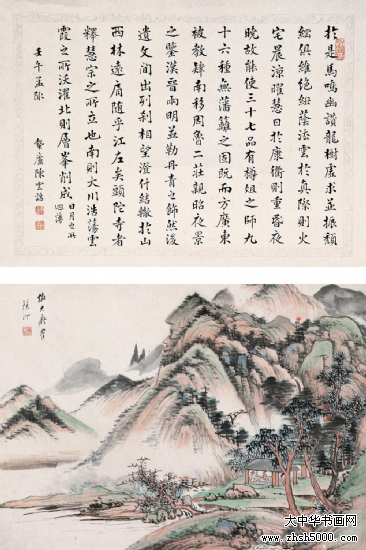 於是馬鳴幽讚龍樹虛求並振頹
綱俱維絕紐蔭法雲于真際則火
宅晨涼曜慧日於康衢則重昬夜
曉故能使三十七品有樽俎之師九
十六種無藩籬之固既而方廣東
被教肆南移周魯二莊親昭夜景
之鑒漢晉兩明並勒丹青之飾然後
遺文間出列刹相望澄什結轍於山
西林遠肩隨乎江左矣頭陀寺者
釋慧宗之所立也南則大川浩蕩雲
霞之所沃濯北則層峯削成日月之所
迴薄
壬午孟陬
廬陳雲誥
倣大癡筆
大中华书画网
www.zhch5000.com